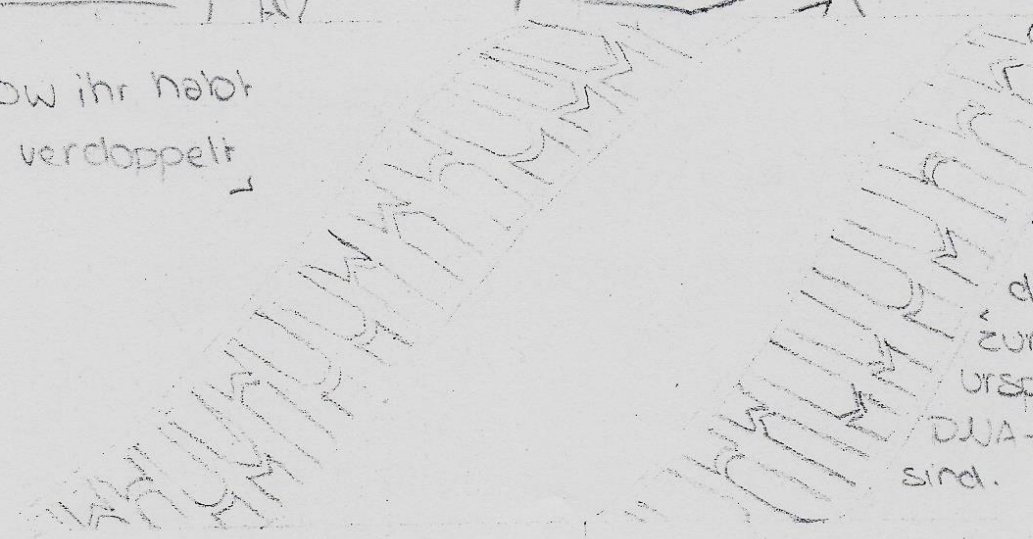 ow ihr habt
verdoppelt
d
zur
ursp
DNA-
sind.